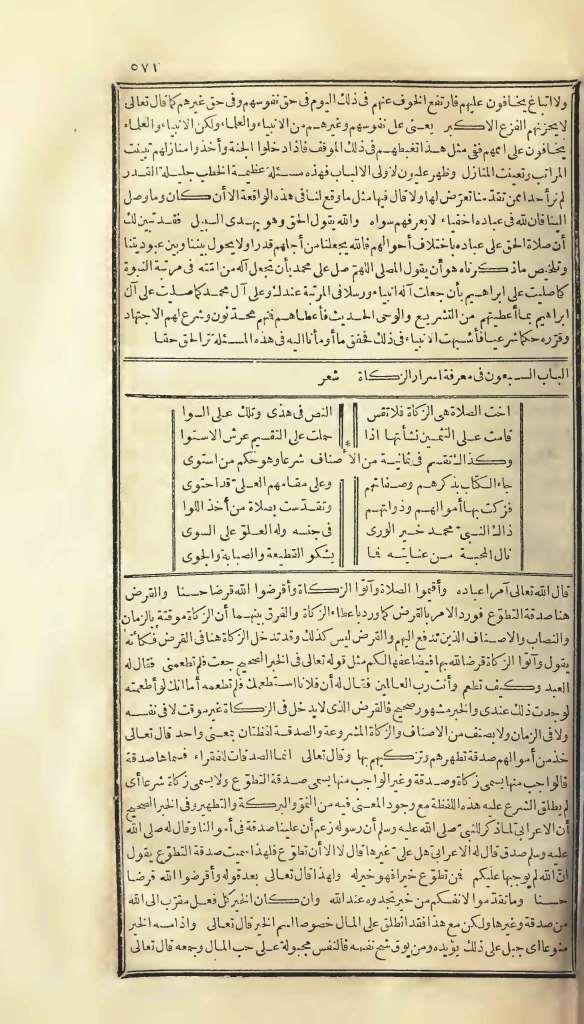 ٥٧١
ولا اتباع يخافون عليهم فارتفع الخوف عنهم فى ذلك اليوم فى حق نفوسهم وفى حق غيرهم كما قال تعالى
لا يحزنهم الفزع الاكبر يعنى على نفوسهم وغيرهم من الانبياء والعلماء ولكن الانبياء والعلماء
يخافون على اممهم ففى مثل هذا تغبطهم فى ذلك الموقف فاذا دخلوا الجنة وأخذوا منازلهم تبينت
المراتب وتعينت المنازل وظهر عليون لاولى الالباب فهذه مسئلة عظيمة الخطب جليلة القدر
لم نر أحدا ممن تقدّمنا تعرّض لها ولا قال فيها مثل ما وقع لنا فى هذه الواقعة الا ان كان وما وصل
الينا فان لله فى عباده اخفياء لا يعرفهم سواه والله يقول الحق وهو يهدى السبيل فقد تبين لك
أن صلاة الحق على عباده باختلاف أحوالهم فالله يجعلنا من أجلهم قدرا ولا يحول بيننا وبين عبوديتنا
وتلخيص ما ذكرناه هو أن يقول المصلى اللهمّ صل على محمد بأن تجعل آله من امّته فى مرتبة النبوة
كما صليت على ابراهيم بأن جعلت آله انبياء ورسلا فى المرتبة عندك وعلى آل محمد كما صليت على آل
ابراهيم بما أعطيتهم من التشريع والوحى الحديث فأعطاهم فمنهم محدّثون وشرع لهم الاجتهاد
وقرّره حكما شرعيا فأشبهت الانبياء فى ذلك فحقق ما أومأنا اليه فى هذه المسئلة تر الحق حقا
الباب السبعون فى معرفة اسرار الزكاة شعر
اخت الصلاة هى الزكاة فلا تقس النص فى هذى وتلك على السوا
قامت على التثمين نشأتها اذا حملت على التقسيم عرش الاستوا
وكذاك تقسم فى ثمانية من الاصناف شرعا وهو حكم من استوى
جاء الكتاب بذكرهم وصفاتهم وعلى مقامهم العلىّ قد احتوى
فزكت بها أموالهم وذواتهم وتقدّست بصلاة من أخذ اللوا
ذاك النبىّ محمد خير الورى فى جنسه وله العلوّ على السوى
نال المحبة من عنايته فما يشكو القطيعة والصبابة والجوى
قال الله تعالى آمرا عباده وأقيموا الصلاة وآتوا الزكاة وأقرضوا الله قرضا حسنا والقرض
هنا صدقة التطوّع فورد الامر بالقرض كما ورد باعطاء الزكاة والفرق بينهما أن الزكاة موقتة بالزمان
والنصاب والاصناف الذين تدفع اليهم والقرض ليس كذلك وقد تدخل الزكاة هنا فى القرض فكأنه
يقول وآتوا الزكاة قرضا لله بها فيضاعفها لكم مثل قوله تعالى فى الخبر الصحيح جعت فلم تطعمنى فقال له
العبد وكيف تطعم وأنت رب العالمين فقال له أن فلانا استطعمك فلم تطعمه أما انك لو أطعمته
لوجدت ذلك عندى والخبر مشهور صحيح فالقرض الذى لا يدخل فى الزكاة غير موقت لا فى نفسه
ولا فى الزمان ولا بصنف من الاصناف والزكاة المشروعة والصدقة لفظتان بمعنى واحد قال تعالى
خذ من أموالهم صدقة تطهرهم وتزكيهم بها وقال تعالى انما الصدقات للفقراء فسماها صدقة
فالواجب منها يسمى زكاة وصدقة وغير الواجب منها يسمى صدقة التطوّع ولا يسمى زكاة شرعا أى
لم يطلق الشرع عليه هذه اللفظة مع وجود المعنى فيه من النموّ والبركة والتطهير وفى الخبر الصحيح
أن الاعرابى لما ذكر للنبىّ صلى الله عليه وسلم أن رسوله زعم أن علينا صدقة فى أموالنا وقال له صلى الله
عليه وسلم صدق قال له الاعرابى هل علىّ غيرها قال لا الا أن تطوّع فلهذا سميت صدقة التطوّع يقول
انّ الله لم يوجبها عليكم فمن تطوّع خيرا فهو خير له ولهذا قال تعالى بعد قوله وأقرضوا الله قرضا
حسنا وما تقدّموا لانفسكم من خير تجدوه عند الله وان كان الخير كل فعل مقرّب الى الله
من صدقة وغيرها ولكن مع هذا فقد انطلق على المال خصوصا اسم الخير قال تعالى واذا مسه الخير
منوعا أى جبل على ذلك يؤيده ومن يوق شح نفسه فالنفس مجبولة على حب المال وجمعه قال تعالى